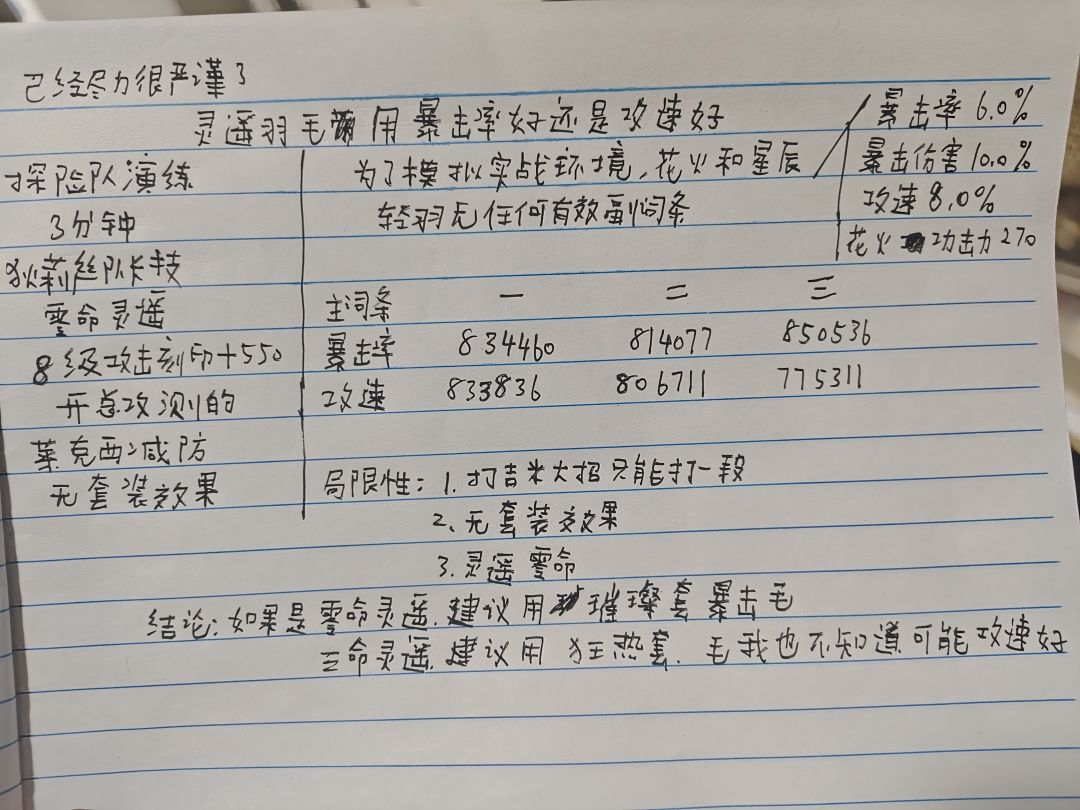 已经尽力很严谨了
灵遥羽毛用暴击率好还是攻速好
探险队演练
3分钟
狄莉丝队长技
零命灵遥
8级攻击刻印+550
开总攻测的
莱克西减防
无套装效果
为了模拟实战环境,花火和星辰
轻羽无任何有效副词条
暴击率6.0%
暴击伤害10.0%
攻速8.0%
花火 功击力270
主词条 一 二 三
暴击率 834460 814077 850536
攻速 833836 806711 775311
局限性:1.打吉米大招只能打一段
2、无套装效果
3.灵遥零命
结论:如果是零命灵遥.建议用璀璨套暴击毛
三命灵遥.建议用狂热套.毛我也不知道可能攻速好